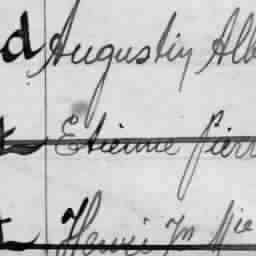 d Augustin Alb
t Etienne Pierr
t Henri M Pie